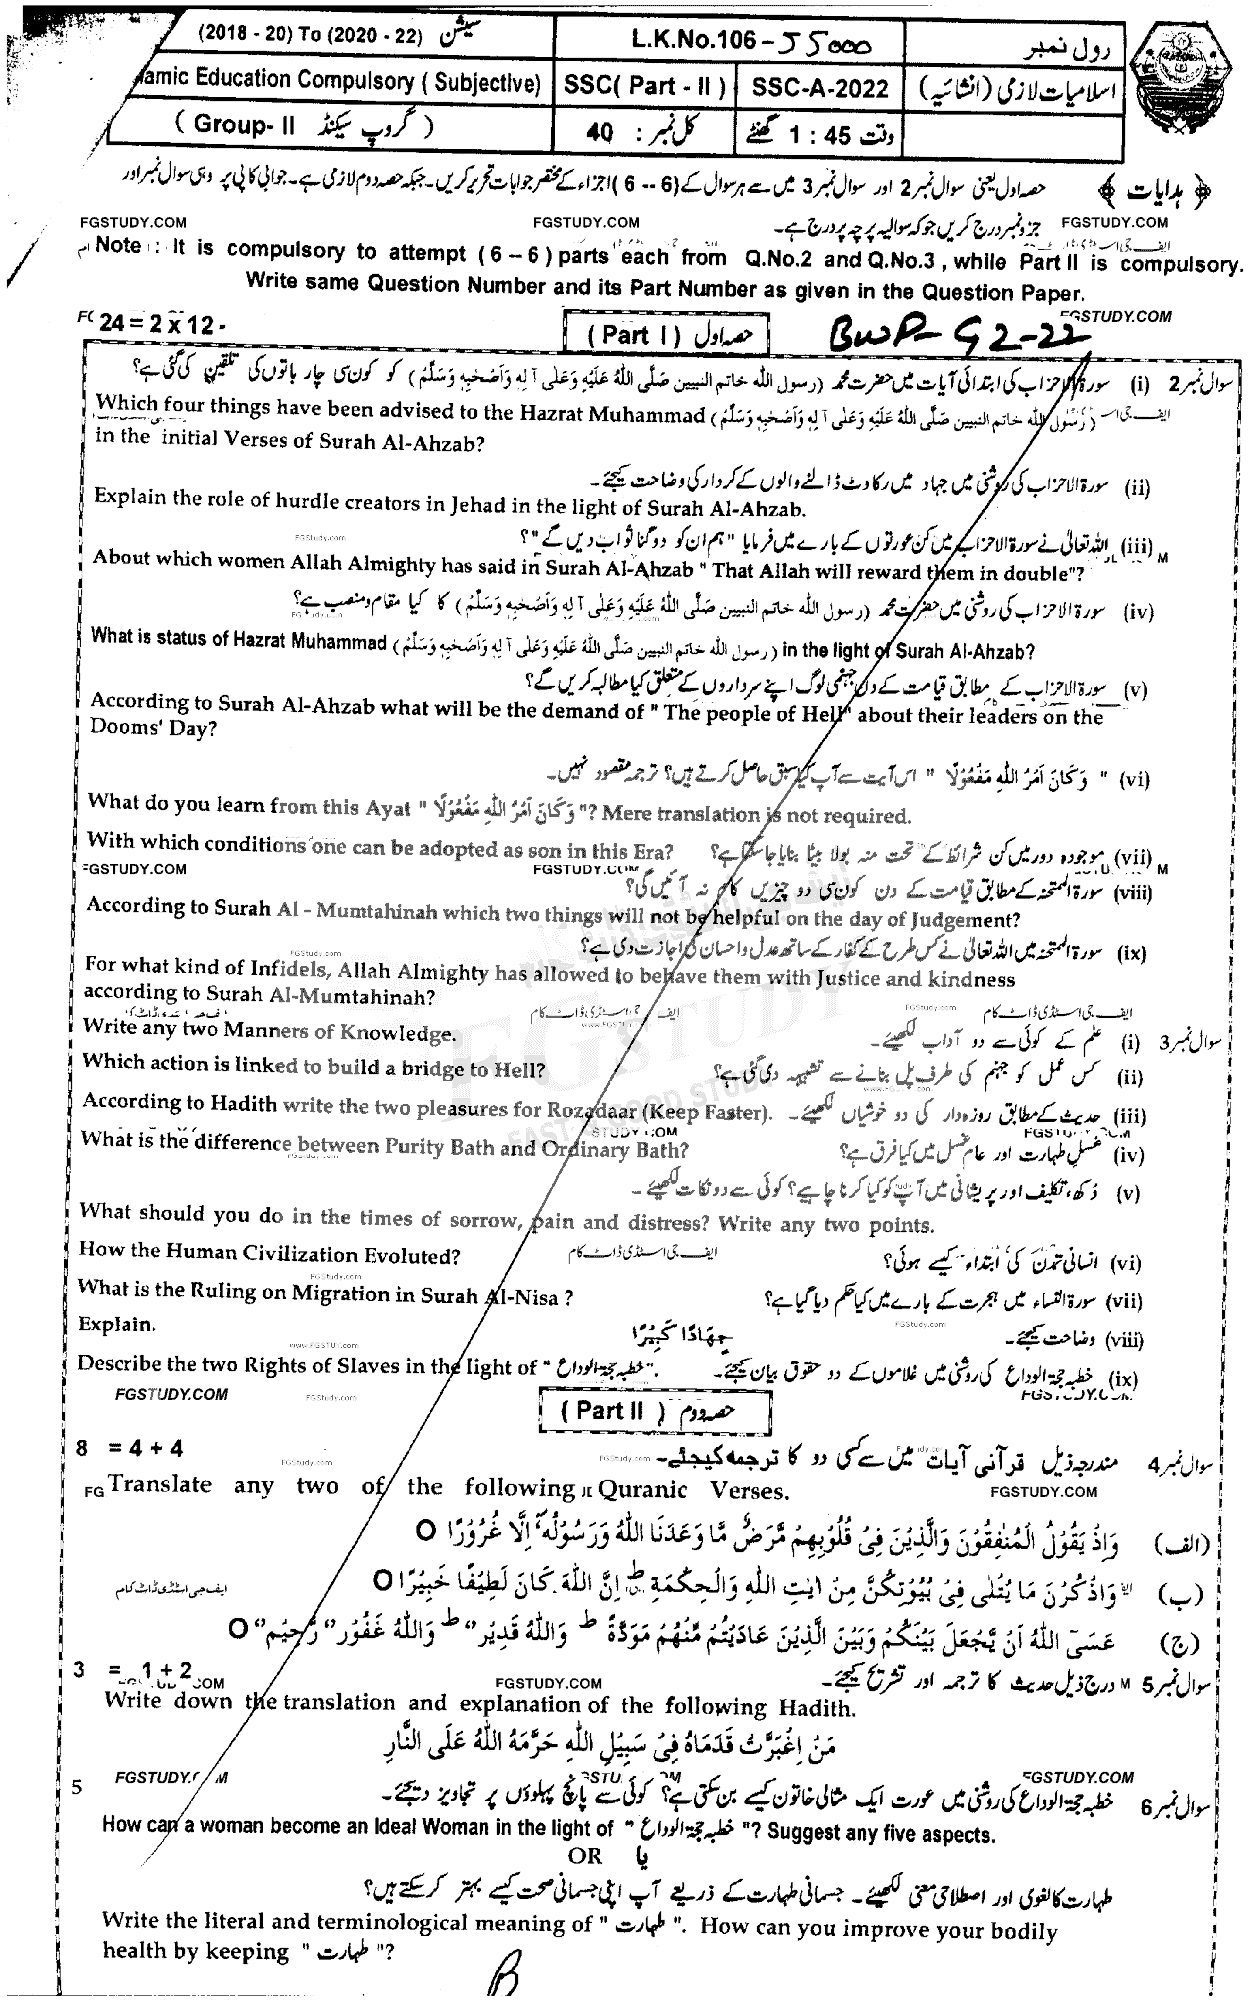 (2018 - 20) To (2020 - 22) سیشن
L.K.No.106 - 55000
رول نمبر
lamic Education Compulsory ( Subjective)
SSC( Part - II )
SSC-A-2022
اسلامیات لازمی (انشائیہ)
( Group- II گروپ سیکنڈ )
کل نمبر : 40
وقت 1 : 45 گھنٹے
﴿ ہدایات ﴾ حصہ اول یعنی سوال نمبر 2 اور سوال نمبر 3 میں سے ہر سوال کے (6 -- 6) اجزاء کے مختصر جوابات تحریر کریں۔ جبکہ حصہ دوم لازمی ہے۔ جوابی کاپی پر وہی سوال نمبر اور
جزو نمبر درج کریں جو کہ سوالیہ پرچہ پر درج ہے۔
FGSTUDY.COM FGSTUDY.COM FGSTUDY.COM
Note : It is compulsory to attempt ( 6 – 6 ) parts each from Q.No.2 and Q.No.3 , while Part II is compulsory.
Write same Question Number and its Part Number as given in the Question Paper.
24 = 2 x 12 -
(Part I) حصہ اول
BWP-G2-22
FGSTUDY.COM
سوال نمبر 2 (i) سورۃ الاحزاب کی ابتدائی آیات میں حضرت محمد (رسول اللہ خاتم النبیین صَلَّی اللہُ عَلَیْہِ وَعَلٰی آلِہٖ وَاَصْحٰبِہٖ وَسَلَّمَ) کو کون سی چار باتوں کی تلقین کی گئی ہے؟
Which four things have been advised to the Hazrat Muhammad (رَسُول اللہ خاتم النبیین صَلَّی اللہُ عَلَیْہِ وَعَلٰی آلِہٖ وَاَصْحٰبِہٖ وَسَلَّمَ)
in the initial Verses of Surah Al-Ahzab?
(ii) سورۃ الاحزاب کی روشنی میں جہاد میں رکاوٹ ڈالنے والوں کے کردار کی وضاحت کیجئے۔
Explain the role of hurdle creators in Jehad in the light of Surah Al-Ahzab.
(iii) اللہ تعالٰی نے سورۃ الاحزاب میں کن عورتوں کے بارے میں فرمایا "ہم ان کو دوگنا ثواب دیں گے"؟
About which women Allah Almighty has said in Surah Al-Ahzab " That Allah will reward them in double"?
(iv) سورۃ الاحزاب کی روشنی میں حضرت محمد (رسول اللہ خاتم النبیین صَلَّی اللہُ عَلَیْہِ وَعَلٰی آلِہٖ وَاَصْحٰبِہٖ وَسَلَّمَ) کا کیا مقام و منصب ہے؟
What is status of Hazrat Muhammad (رسول اللہ خاتم النبیین صَلَّی اللہُ عَلَیْہِ وَعَلٰی آلِہٖ وَاَصْحٰبِہٖ وَسَلَّمَ) in the light of Surah Al-Ahzab?
(v) سورۃ الاحزاب کے مطابق قیامت کے دن جہنمی لوگ اپنے سرداروں کے متعلق کیا مطالبہ کریں گے؟
According to Surah Al-Ahzab what will be the demand of " The people of Hell" about their leaders on the
Dooms' Day?
(vi) " وَکَانَ اَمْرُ اللہِ مَفْعُوْلًا " اس آیت سے آپ کیا سبق حاصل کرتے ہیں؟ ترجمہ مقصود نہیں۔
What do you learn from this Ayat " وَکَانَ اَمْرُ اللہِ مَفْعُوْلًا "? Mere translation is not required.
With which conditions one can be adopted as son in this Era? (vii) موجودہ دور میں کن شرائط کے تحت منہ بولا بیٹا بنایا جا سکتا ہے؟
FGSTUDY.COM FGSTUDY.COM
(viii) سورۃ الممتحنہ کے مطابق قیامت کے دن کون سی دو چیزیں کام نہ آئیں گی؟
According to Surah Al - Mumtahinah which two things will not be helpful on the day of Judgement?
(ix) سورۃ الممتحنہ میں اللہ تعالٰی نے کس طرح کے کفار کے ساتھ عدل و احسان کی اجازت دی ہے؟
For what kind of Infidels, Allah Almighty has allowed to behave them with Justice and kindness
according to Surah Al-Mumtahinah?
Write any two Manners of Knowledge. سوال نمبر 3 (i) علم کے کوئی سے دو آداب لکھیئے۔
Which action is linked to build a bridge to Hell? (ii) کس عمل کو جہنم کی طرف پل بنانے سے تشبیہہ دی گئی ہے؟
According to Hadith write the two pleasures for Rozadaar (Keep Faster). (iii) حدیث کے مطابق روزہ دار کی دو خوشیاں لکھیئے۔
What is the difference between Purity Bath and Ordinary Bath? (iv) غسل طہارت اور عام غسل میں کیا فرق ہے؟
(v) دُکھ، تکلیف اور پریشانی میں آپ کو کیا کرنا چاہیے؟ کوئی سے دو نکات لکھیئے۔
What should you do in the times of sorrow, pain and distress? Write any two points.
How the Human Civilization Evoluted? ایف جی اسٹڈی ڈاٹ کام (vi) انسانی تمدن کی ابتداء کیسے ہوئی؟
What is the Ruling on Migration in Surah Al-Nisa ? (vii) سورۃ النساء میں ہجرت کے بارے میں کیا حکم دیا گیا ہے؟
Explain. جِهَادًا كَبِيْرًا (viii) وضاحت کیجئے۔
Describe the two Rights of Slaves in the light of " خطبہ حجۃ الوداع ". (ix) خطبہ حجۃ الوداع کی روشنی میں غلاموں کے دو حقوق بیان کیجئے۔
FGSTUDY.COM
(Part II) حصہ دوم
8 = 4 + 4 سوال نمبر 4 مندرجہ ذیل قرآنی آیات میں سے کسی دو کا ترجمہ کیجئے۔
Translate any two of the following Quranic Verses. FGSTUDY.COM
(الف) وَاِذْ يَقُوْلُ الْمُنٰفِقُوْنَ وَالَّذِيْنَ فِيْ قُلُوْبِهِمْ مَّرَضٌ مَّا وَعَدَنَا اللهُ وَرَسُوْلُهٗٓ اِلَّا غُرُوْرًا O
(ب) وَاذْكُرْنَ مَا يُتْلٰى فِيْ بُيُوْتِكُنَّ مِنْ اٰيٰتِ اللهِ وَالْحِكْمَةِ ط اِنَّ اللهَ كَانَ لَطِيْفًا خَبِيْرًا O
(ج) عَسَى اللهُ اَنْ يَّجْعَلَ بَيْنَكُمْ وَبَيْنَ الَّذِيْنَ عَادَيْتُمْ مِّنْهُمْ مَوَدَّةً ط وَاللهُ قَدِيْرٌ ط وَاللهُ غَفُوْرٌ رَّحِيْمٌ O
3 = 1 + 2 سوال نمبر 5 درج ذیل حدیث کا ترجمہ اور تشریح کیجئے۔
FGSTUDY.COM
Write down the translation and explanation of the following Hadith.
مَنْ اِغْبَرَّتْ قَدَمَاهُ فِيْ سَبِيْلِ اللهِ حَرَّمَهُ اللهُ عَلَى النَّارِ
FGSTUDY.COM FGSTUDY.COM
5 سوال نمبر 6 خطبہ حجۃ الوداع کی روشنی میں عورت ایک مثالی خاتون کیسے بن سکتی ہے؟ کوئی سے پانچ پہلوؤں پر تجاویز دیجئے۔
How can a woman become an Ideal Woman in the light of " خطبہ حجۃ الوداع "? Suggest any five aspects.
OR یا
طہارت کا لغوی اور اصطلاحی معنی لکھیئے۔ جسمانی طہارت کے ذریعے آپ اپنی جسمانی صحت کیسے بہتر کر سکتے ہیں؟
Write the literal and terminological meaning of " طہارت ". How can you improve your bodily
health by keeping " طہارت "?
B